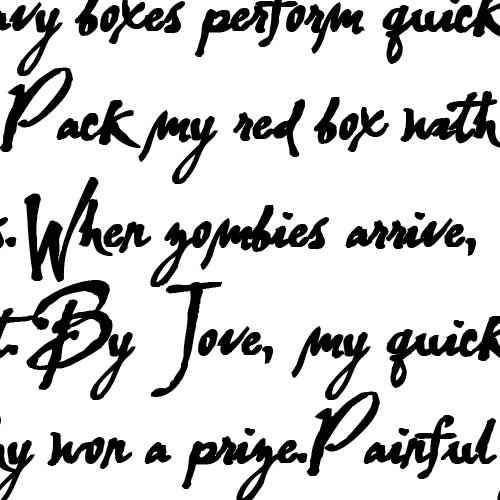 boxes perform quick
Pack my red box with
s. When zombies arrive,
t. By Jove, my quick
won a prize. Painful